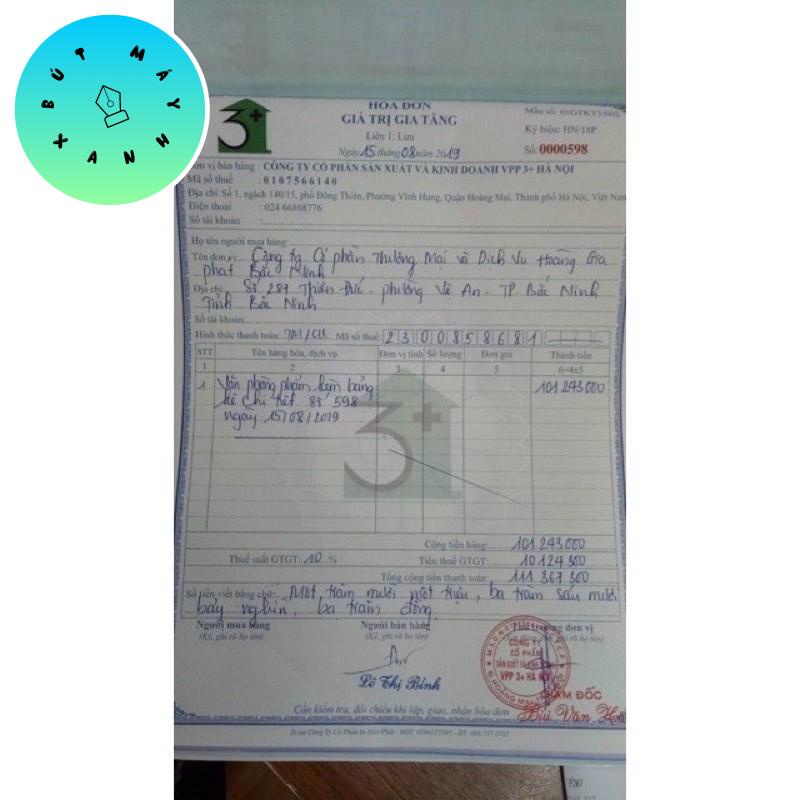 BÚT MÁY XANH
3+
HÓA ĐƠN
GIÁ TRỊ GIA TĂNG
Liên 1: Lưu
Ngày 15 tháng 08 năm 2019
Mẫu số: 01GTKT3/002
Ký hiệu: HN/18P
Số: 0000598
Đơn vị bán hàng : CÔNG TY CỔ PHẦN SẢN XUẤT VÀ KINH DOANH VPP 3+ HÀ NỘI
Mã số thuế : 0107566140
Địa chỉ: Số 1, ngách 140/15, phố Đông Thiên, Phường Vĩnh Hưng, Quận Hoàng Mai, Thành phố Hà Nội, Việt Nam
Điện thoại : 024 66868776
Số tài khoản :
Họ tên người mua hàng:
Tên đơn vị: Công ty Cổ phần Thương Mại và Dịch Vụ Hoàng Gia
phát Bắc Ninh
Địa chỉ: Số 287 Thiên Đức - phường Vệ An - TP. Bắc Ninh
Tỉnh Bắc Ninh
Số tài khoản:
Hình thức thanh toán: TM/CK Mã số thuế: 2300858681
STT Tên hàng hóa, dịch vụ Đơn vị tính Số lượng Đơn giá Thành tiền
1 2 3 4 5 6=4x5
1 Văn phòng phẩm kèm bảng 101 243 000
kê chi tiết số 598
ngày 15/08/2019
3+
Cộng tiền hàng: 101 243 000
Thuế suất GTGT: 10 % Tiền thuế GTGT: 10 124 300
Tổng cộng tiền thanh toán: 111 367 300
Số tiền viết bằng chữ: Một trăm mười một triệu, ba trăm sáu mươi
bảy nghìn, ba trăm đồng.
Người mua hàng Người bán hàng Thủ trưởng đơn vị
(Ký, ghi rõ họ tên) (Ký, ghi rõ họ tên)
CÔNG TY
CỔ PHẦN
SẢN XUẤT VÀ KINH DOANH
VPP 3+ HÀ NỘI
GIÁM ĐỐC
Lê Thị Bình
Bùi Văn
Cần kiểm tra, đối chiếu khi lập, giao, nhận hóa đơn